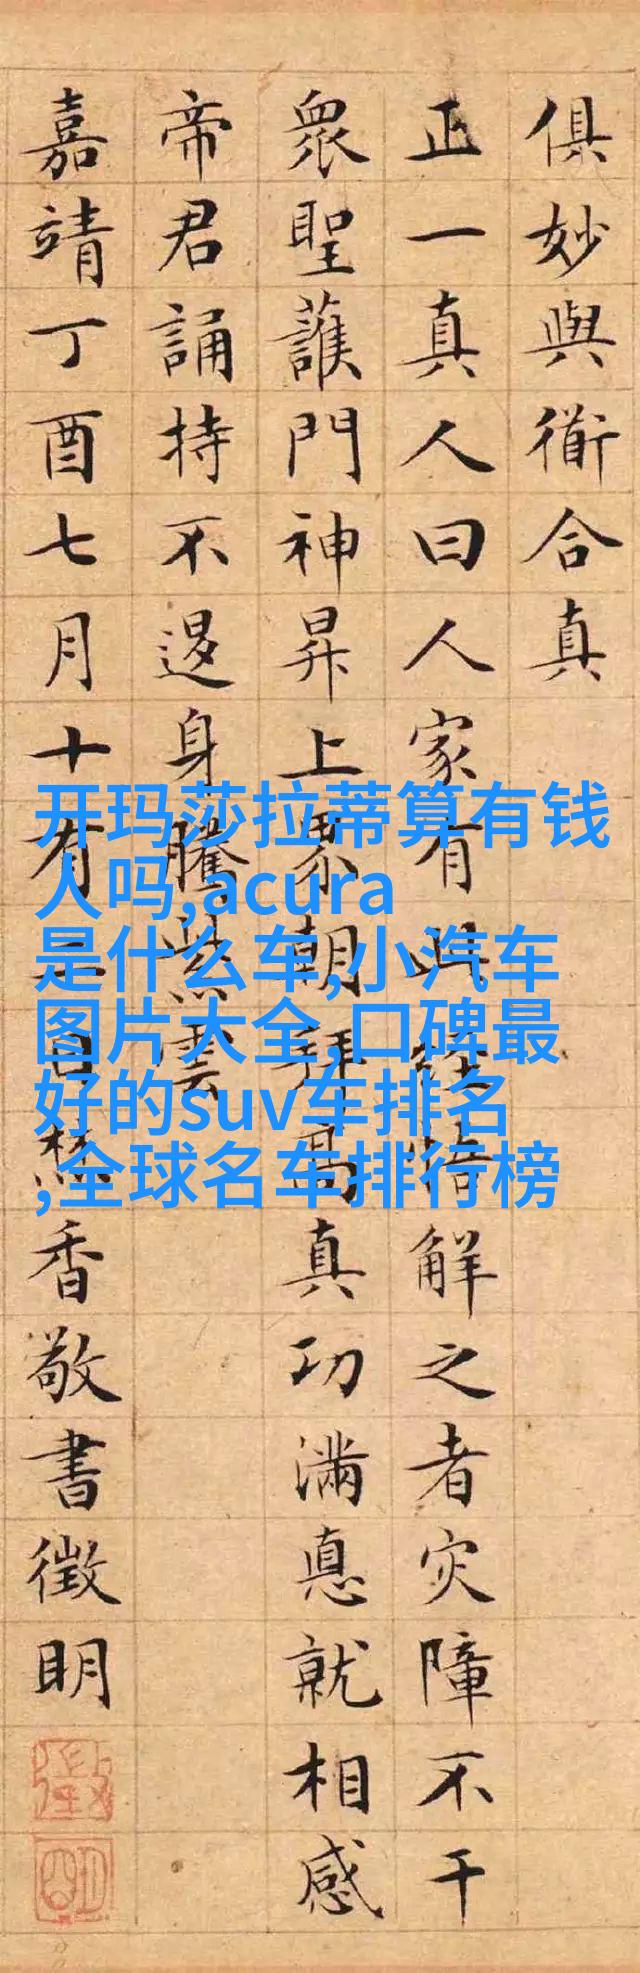 俱妙與衜合真
正一真人曰人家有此經悟解之者灾障不干
眾聖護門神昇上界朝拜高真功滿悳就相感
帝君誦持不退身騰紫雲
嘉靖丁酉七月十有日焚香敬書徵明
开玛莎拉蒂算有钱
人吗,acura
是什么车,小汽车
图片大全,口碑最
好的suv车排名
,全球名车排行榜
徵
明